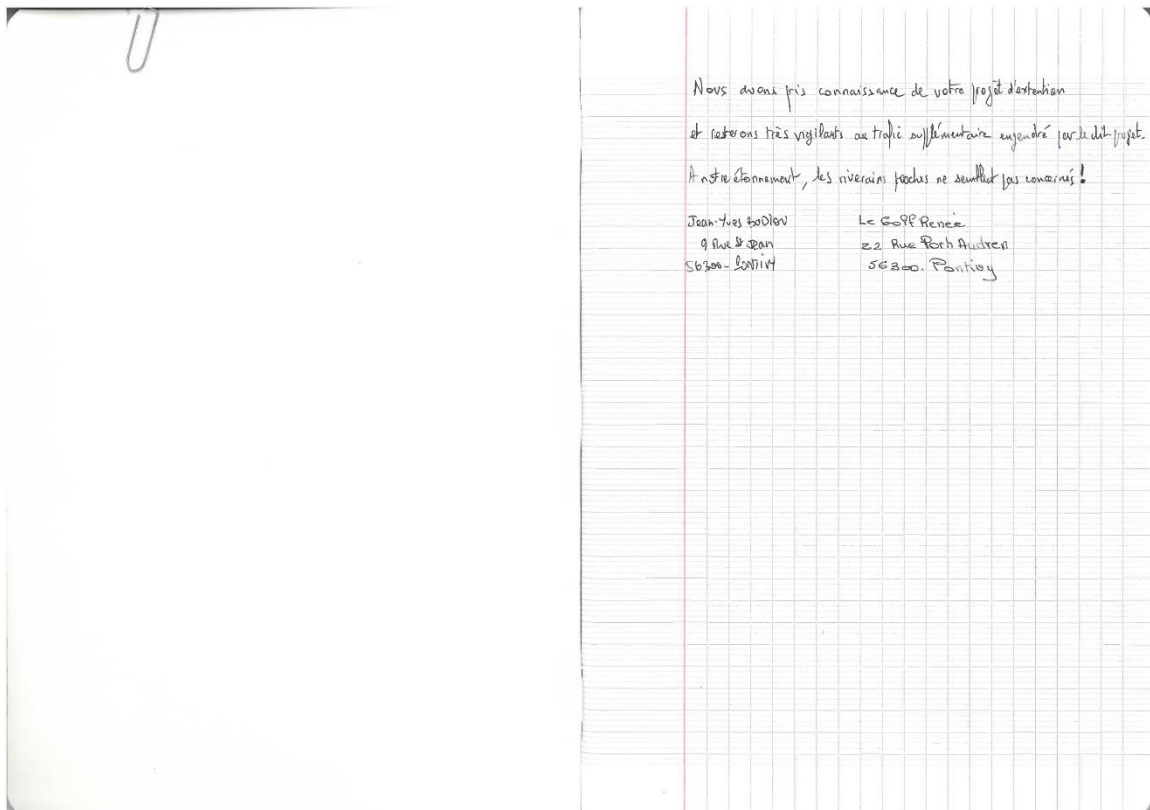 Nous avons pris connaissance de votre projet d'extention
et resterons très vigilants au trafic supplémentaire engendré par le dit projet.
A notre étonnement, les riverains proches ne semblent pas concernés !
Jean-Yves Le Goff Renée
9 Rue St Jean 22 Rue Porh Audren
56300 - Pontivy 56300. Pontivy